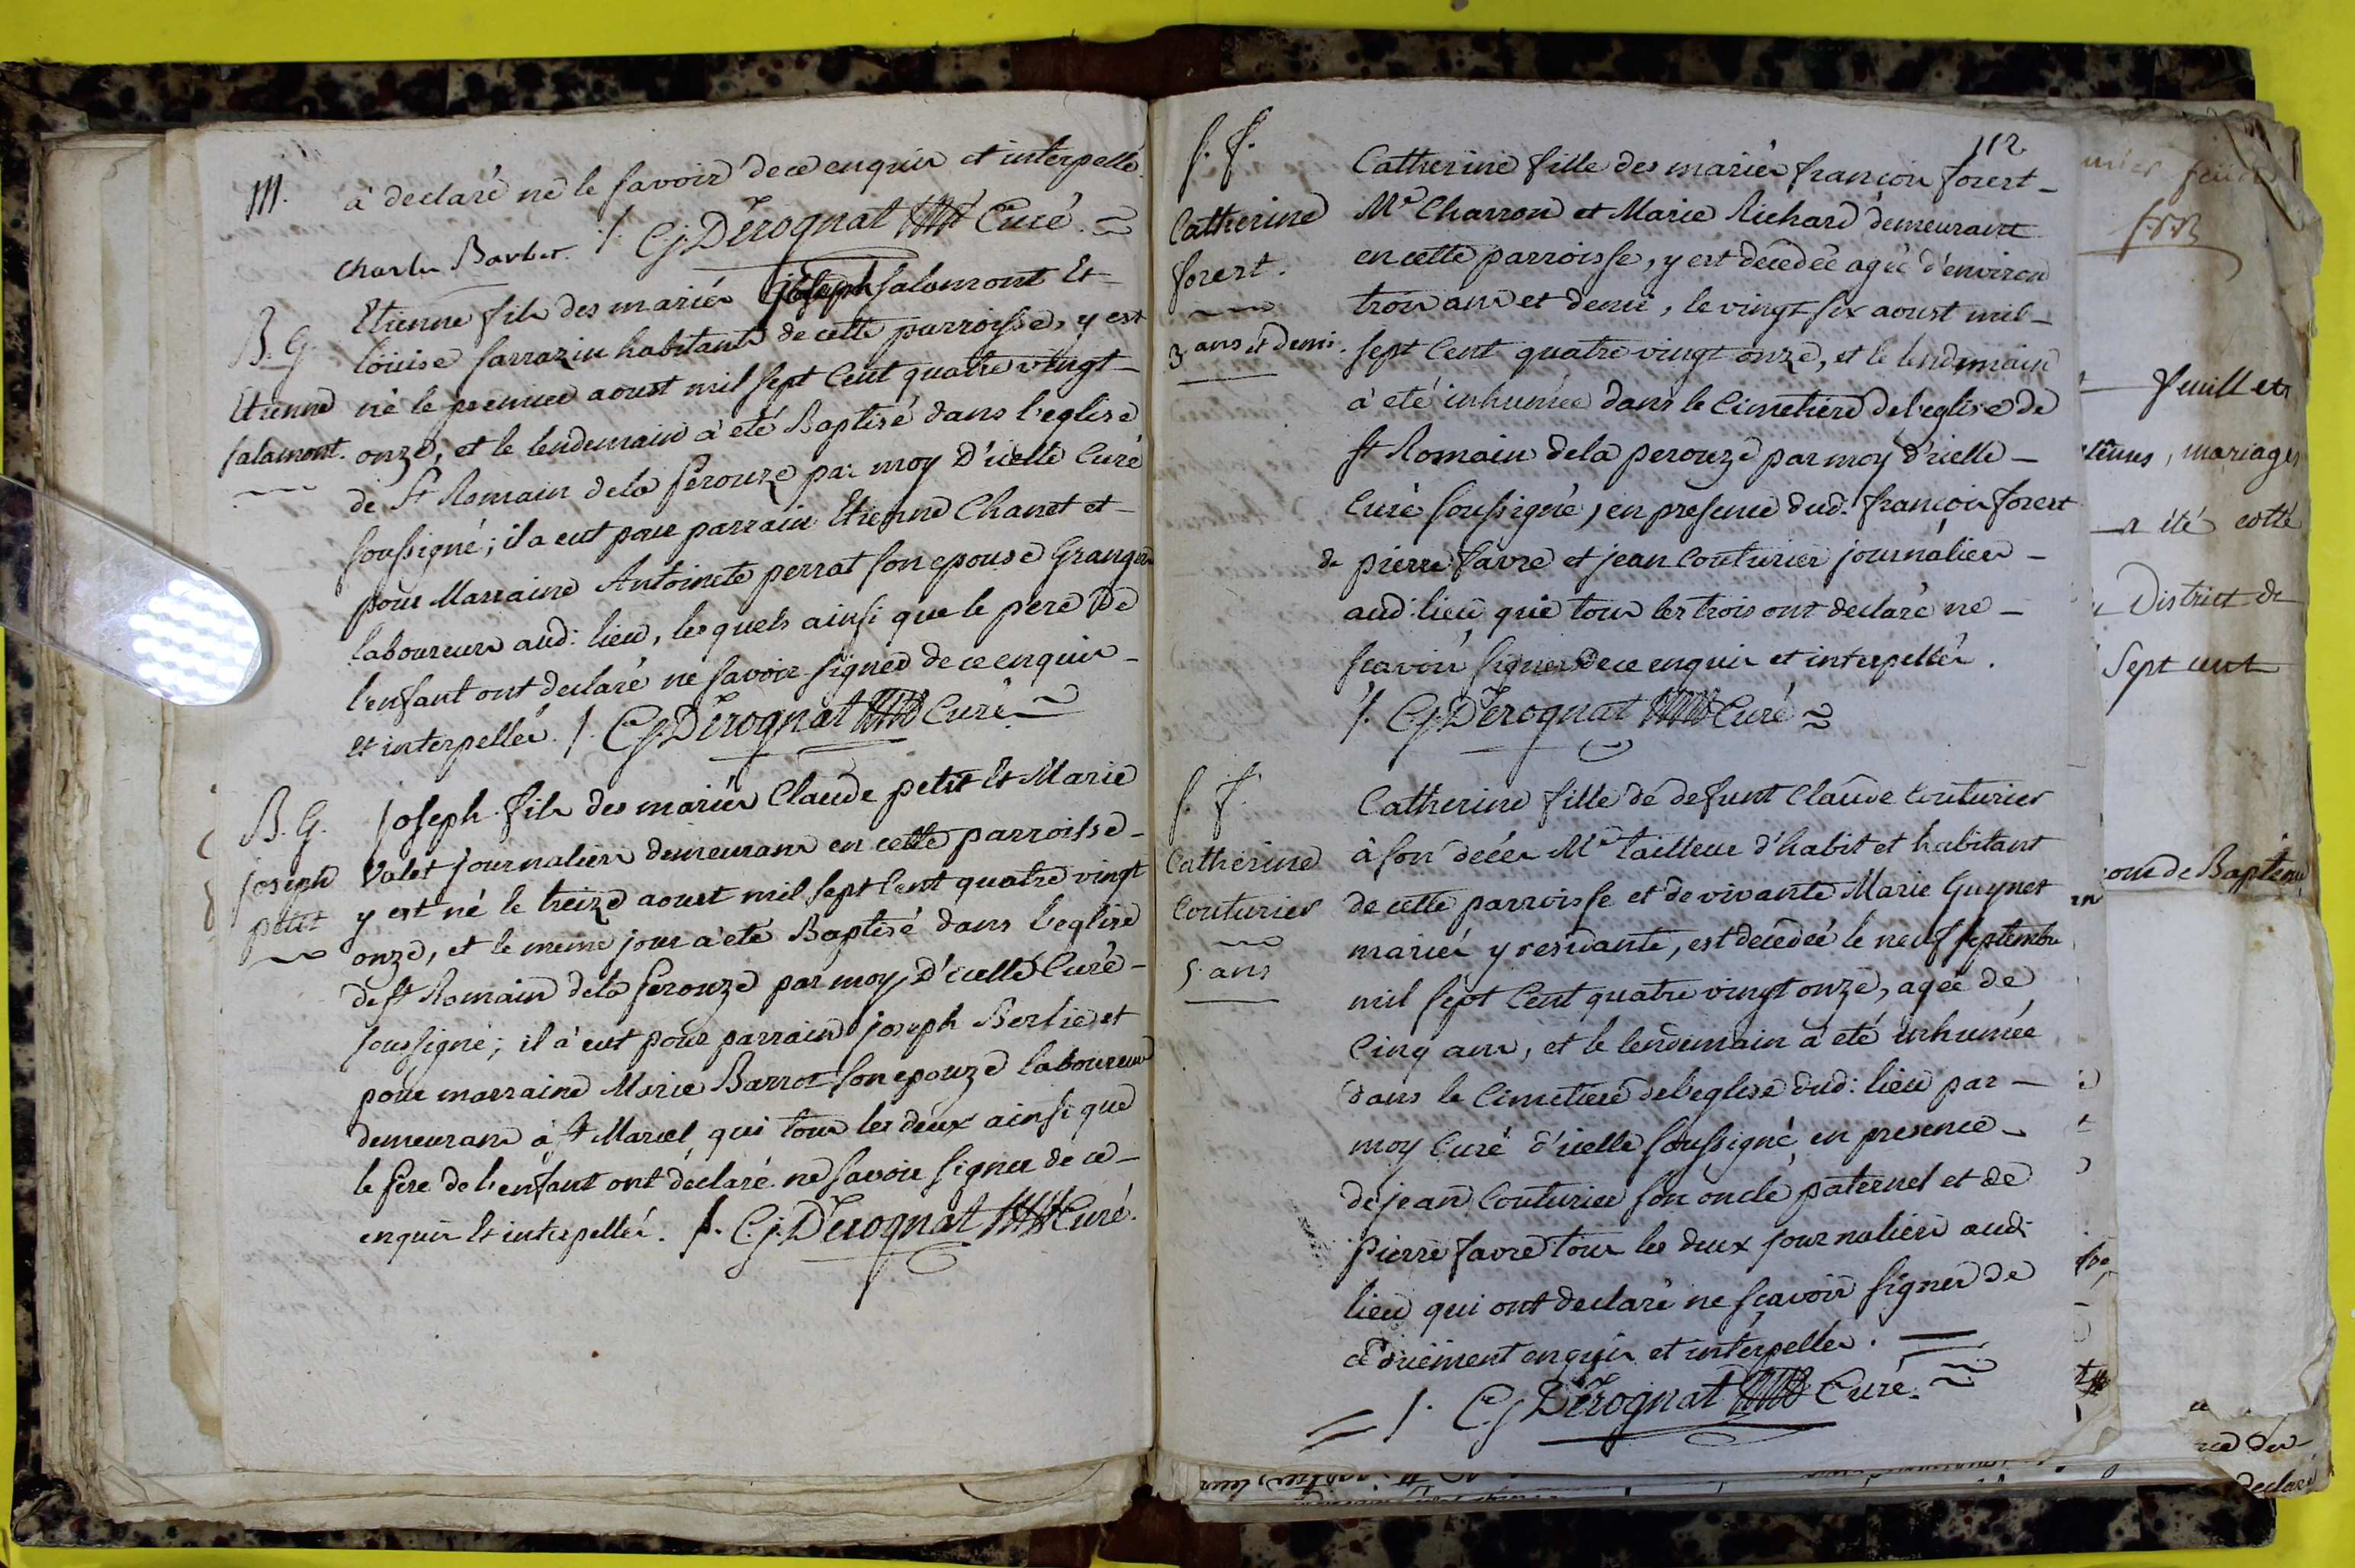 111.
à declaré ne le savoir de ce enquis et interpellé.
Charles Barbet. /. C j. Dérognat Curé.
B. G.
Etienne
salamont.
Etienne fils des mariés joseph salamont Et
loüise sarrazin habitants de cette parroisse, y est
né le premier aoust mil sept Cent quatre vingt
onze, et le lendemain à eté Baptisé dans l'eglise
de St Romain dela Perouze par moy D'icelle Curé
soussigné; il a eut pour parrain Etienne Chanet et
pour Marraine Antoinete perrat son epouse Grangers
laboureurs aud: lieu, lesquels ainsi que le pere De
l'enfant ont declaré ne savoir signer de ce enquis
Et interpellés. /. C j. Dérognat Curé
B. G.
joseph
petit
Joseph fils des mariés Claude petit Et Marie
Valet journaliers demeurans en cette parroisse
y est né le treize aoust mil sept Cent quatre vingt
onze, et le meme jour a eté Baptisé dans l'eglise
de st Romain dela Perouze par moy D'icelle Curé
soussigné; il à eut pour parrain joseph Berlie et
pour marraine Marie Barrot son epouze laboureurs
demeurans à st Marcel qui tous les deux ainsi que
le Pere de l'enfant ont declaré ne savoir signer de ce
enquis Et interpellés. /. C. j. Dérognat Curé.
112
S. F.
Catherine
forest.
3 ans et demi.
Catherine fille des mariés françois forest
Me Charron et Marie Richard demeurant
en cette parroisse, y est decedée agée d'environ
trois ans et demi, le vingt six aoust mil
sept Cent quatre vingt onze, et le lendemain
à eté inhumée dans le Cimetiere de l'eglise de
st Romain dela perouze par moy d'icelle
Curé soussigné, en presence dud. françois forest
de pierre favre et jean Couturier journaliers
aud: lieu qui tous les trois ont declaré ne
scavoir signer de ce enquis et interpellés.
/. C j. Dérognat Curé
S. F.
Catherine
Couturier
5 ans
Catherine fille de defunt Claude Couturier
à son décés Me tailleur d'habit et habitant
de cette parroisse et de vivante Marie Guynet
mariés y residante, est decedée le neuf septembre
mil sept Cent quatre vingt onze, agée de
Cinq ans, et le lendemain a eté inhumée
dans le Cimetiere de l'eglise dud: lieu par
moy Curé d'icelle soussigné en presence
de jean Couturier son oncle paternel et de
Pierre favre tous les deux journaliers aud:
lieu qui ont declaré ne sçavoir signer de
ce duëment enquis et interpellés.
/. C j Dérognat Curé.
feuillets
mariages
a été cotté
District de
Sept cent
de Baptême
declaré